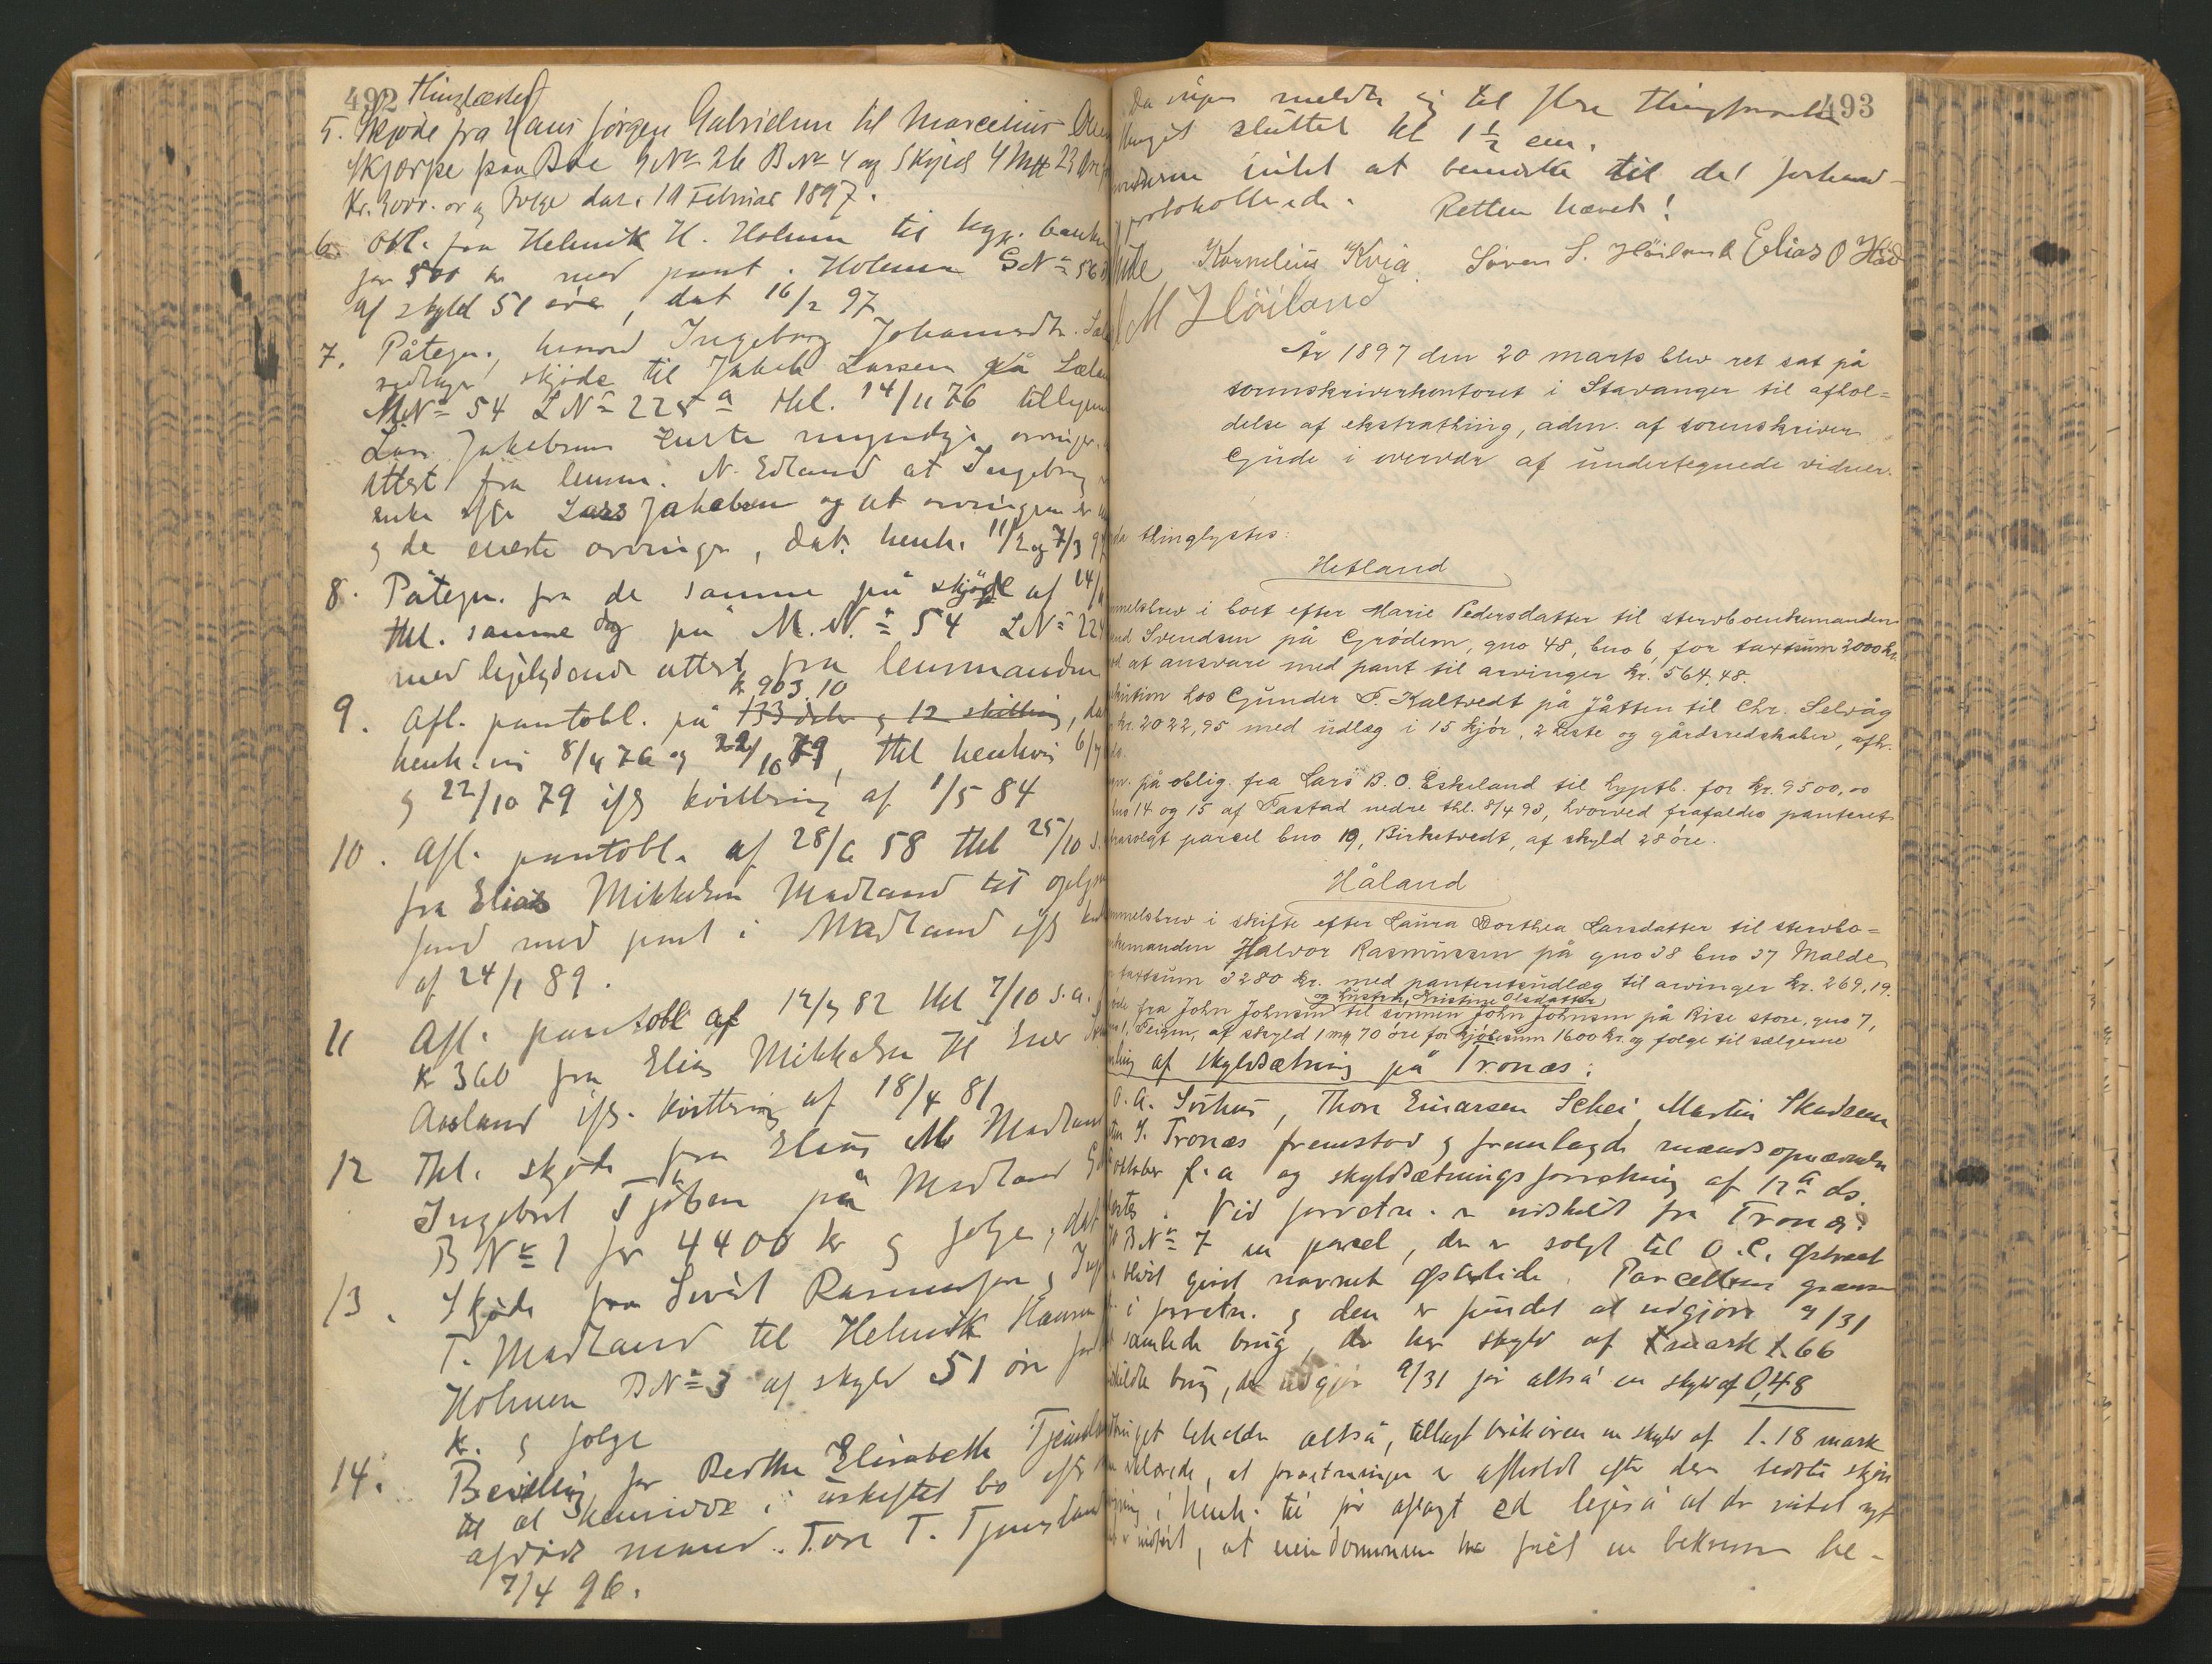 492
Thinglæstes
5. Skjøde fra Hans Jørgen Gabrielsen til Marcelius
Skjørpe paa Boe GNr 26 BNr 4 og Skyld 4 Mk 23 Øre
Kr. og Følge dat. 10 Februar 1897.
6. Obl. fra Helmik H. Holmen til hyp. banken
for 500 kr med pant i Holmen GNr 56
af skyld 51 øre, dat 16/2 97
7. Påtegn., hvorved Ingeborg Johannesdtr.
vedtager skjøde til Jakob Larsen på
M.Nr 54 LNr 225 a thl. 14/11 76 tillige
Lars Jakobsens umyndige arvinger,
attest fra lensm. N. Edland at Ingeborg
enke efter Lars Jakobsen og at arvingerne er
de eneste arvinger, dat. henh. 11/2 og 7/3 97
8. Påtegn. fra de samme på skjøde af 14/11
thl. samme dag på M.Nr 54 LNr 224
med ligelydende attest fra lensmanden
kr 903.10
9. Afl. pantobl. på 133 daler og 12 skilling, dat
henh.vis 8/4 76 og 22/10 79, thl henhvis 6/7
og 22/10 79 ifg kvittering af 1/5 84
10. Afl. pantobl. af 28/6 58 thl 25/10 s.
fra Elias Mikkelsen Madland til oplysn
fond med pant i Madland ifg kvit
af 24/1 89.
11 Afl. pantobl af 12/9 82 thl 7/10 s.a.
kr 360 fra Elias Mikkelsen til Iver
Aasland ifg. kvittering af 18/4 81
12 Thl. skjøde fra Elias M Madland
Ingebret Tjåben på Madland G
B Nr 1 for 4400 kr og følge, dat
13. Skjøde fra Sivert Rasmussen og
T. Madland til Helmik Hansen
Holmen BNr 3 af skyld 51 øre for
kr. og følge
14. Bevilling for Berthe Elisabeth Tjensland
til at hensidde i uskiftet bo efter
afdøde mand Tore T. Tjensland
7/4 96.
493
Da ingen meldte sig til flere thingforretn
thinget sluttet kl 1 1/2 em.
intet at bemærke til det forhand-
protokollerede. Retten hævet!
Gude Kornelius Kvia. Sören S. Höiland Elias O Håv
M Höiland
År 1897 den 20 marts blev ret sat på
sorenskriverkontoret i Stavanger til afhol=
delse af ekstrathing, adm. af sorenskriver
Gude i overvær af undertegnede vidner.
da thinglystes:
Hetland
mmelsbrev i boet efter Marie Pedersdatter til stervboenkemanden
nd Svendsen på Grödem, gno 48, bno 6, for taxtsum 2000 kr.
d at ansvare med pant til arvinger kr. 564.48.
kution hos Gunder T. Kaltvedt på Jåtten til Chr. Selvåg
kr. 2022,95 med udlæg i 15 kjör, 2 heste og gårdsredskaber, afh.
gn. på oblig. fra Lars B. O. Eskeland til hyptb. for kr. 9500,00
bno 14 og 15 af Tastad nedre thl. 8/4 93, hvorved frafaldes panteret
frasolgt parcel bno 19, Birketvedt, af skyld 28 öre.
Håland
mmelsbrev i skifte efter Laura Dorthea Larsdatter til stervbo=
nkemanden Halvor Rasmussen på gno 38 bno 37 Malde
taxtsum 3280 kr. med panteretsudlæg til arvinger kr. 269.19.
og hustru, Kristine Olsdatter
öde fra John Johnsen til sönnen John Johnsen på Rise store, gno 7,
1, Leigen, af skyld 1 mk 70 öre for kjöbesum 1600 kr. og følge til sælgerne
ing af skyldsætning på Tronæs:
O. A. Sörhus, Thore Einarsen Schei, Martin Skadsem
S. Tronæs fremstod og fremlagde mandsopnævnelse
oktober f.a og skyldsætningsforretning af 12te ds.
Ved forretn. er udskilt fra Tronæs
BNr 7 en parcel, der er solgt til O. C. Østraat
blevet givet navnet Østrelide. Parcellens grænser
i forretn. og den er fundet at udgjøre 9/31
samlede brug, der har skyld af mark 1.66
skildte brug, der udgjør 9/31 får altså en skyld af 0,48
get beholder altså, tillagt brøkøren en skyld af 1.18 mark
erklærede, at forretningen er afholdt efter deres bedste skjøn
ning i henh. til før aflagt ed ligeså at der intet nyt
er indført, at eiendommene har fået en bekvem be-